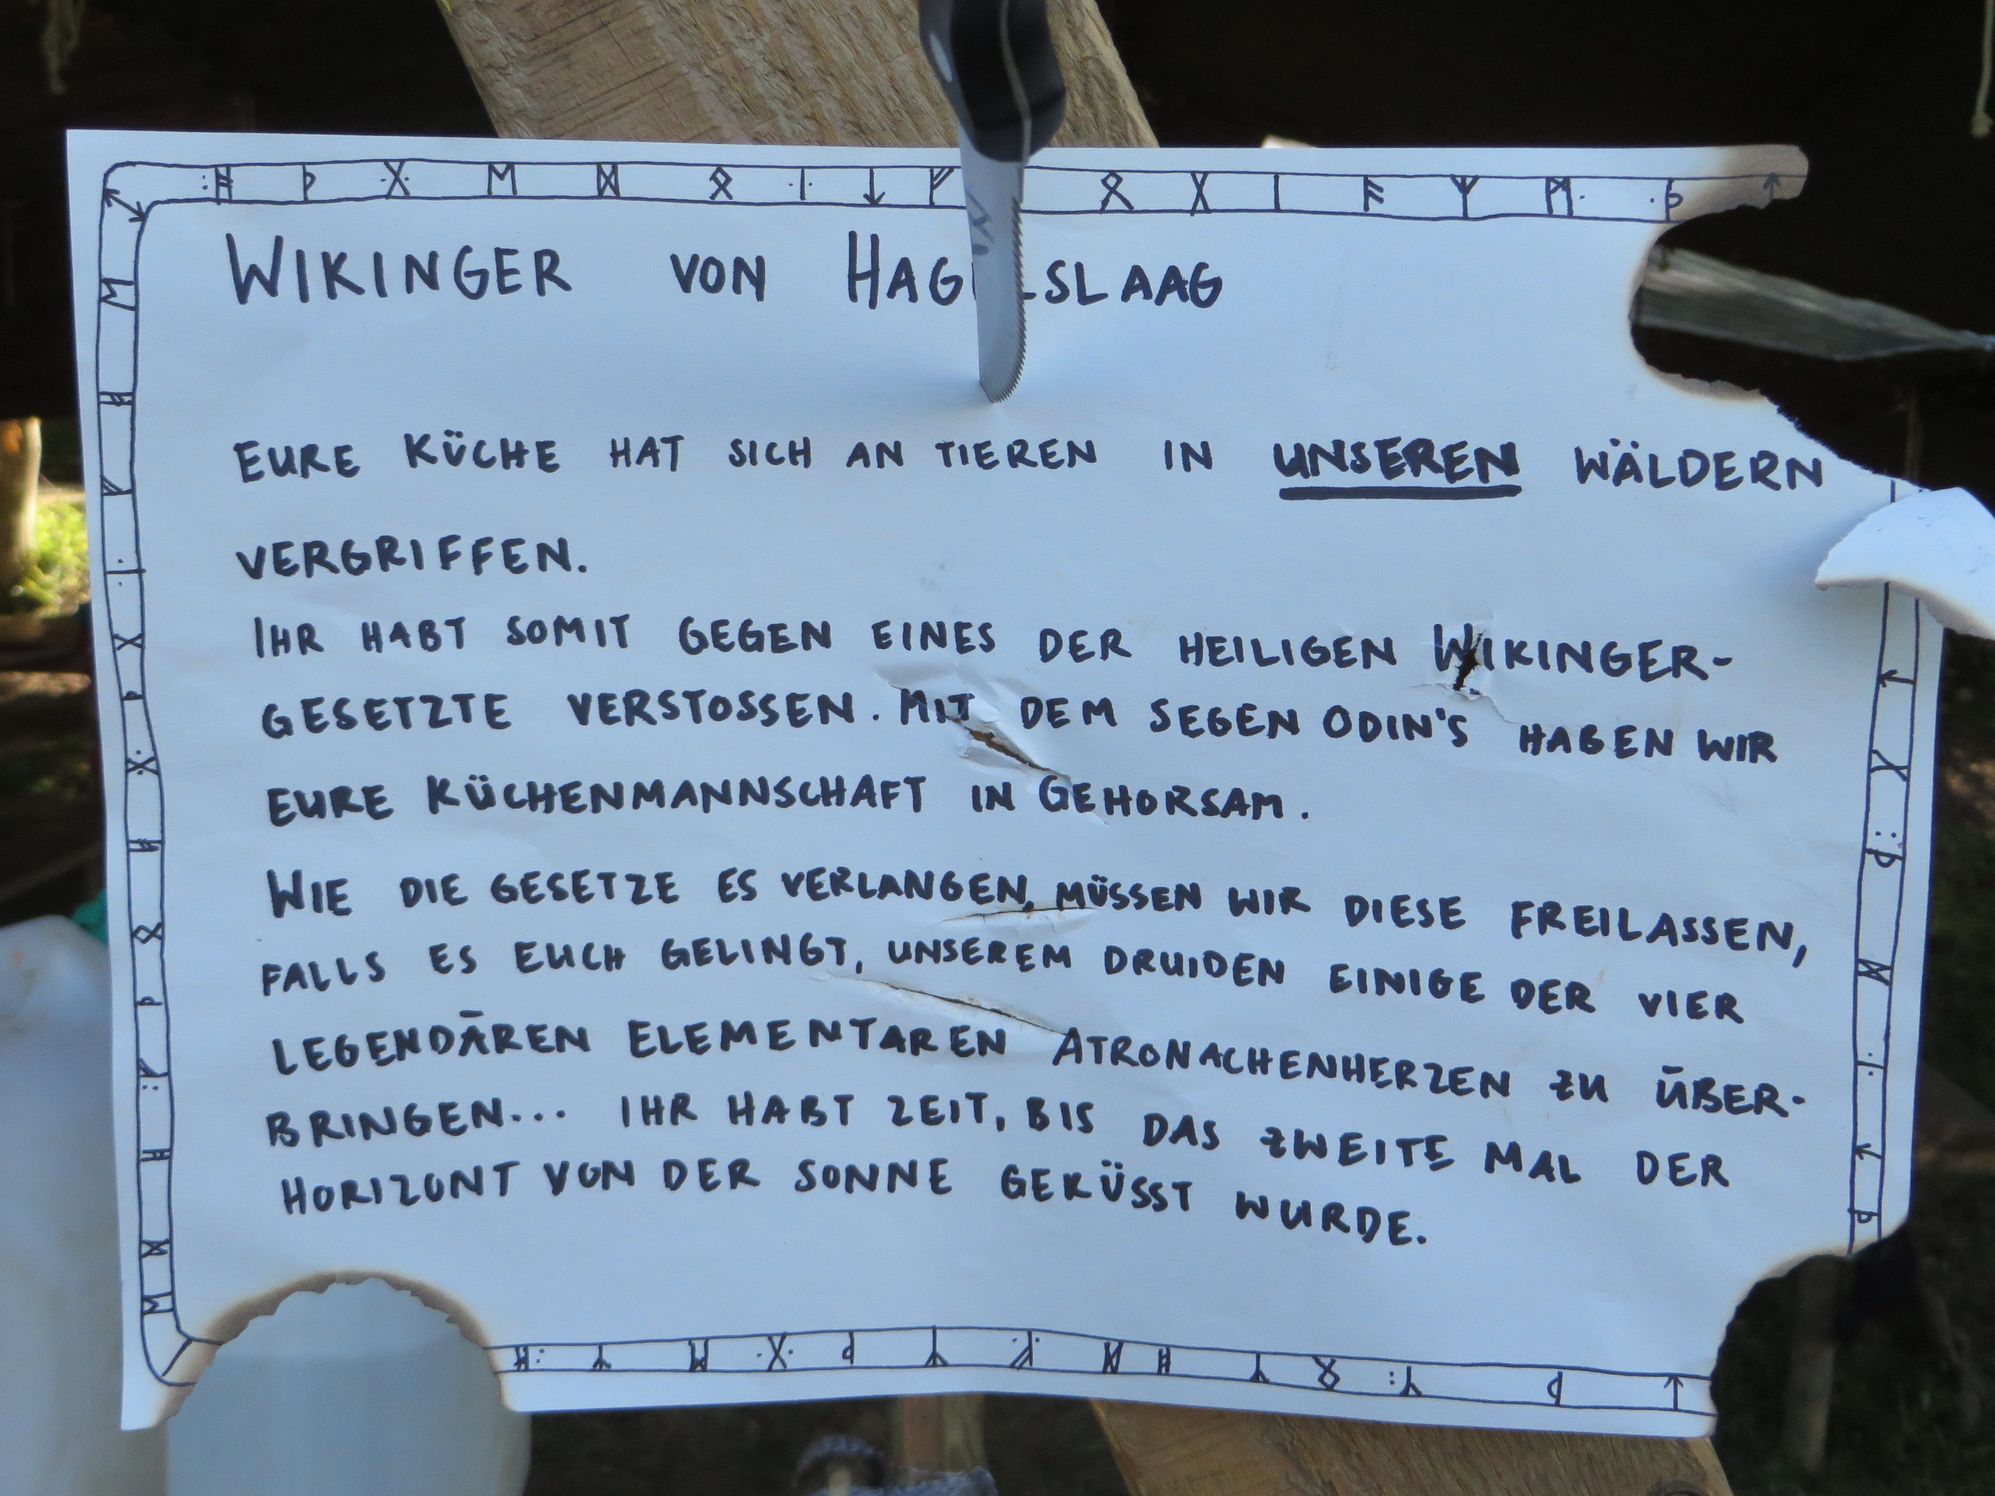 WIKINGER VON HAGELSLAAG
EURE KÜCHE HAT SICH AN TIEREN IN UNSEREN WÄLDERN
VERGRIFFEN.
IHR HABT SOMIT GEGEN EINES DER HEILIGEN WIKINGER-
GESETZTE VERSTOSSEN. MIT DEM SEGEN ODIN'S HABEN WIR
EURE KÜCHENMANNSCHAFT IN GEHORSAM.
WIE DIE GESETZE ES VERLANGEN, MÜSSEN WIR DIESE FREILASSEN,
FALLS ES EUCH GELINGT, UNSEREM DRUIDEN EINIGE DER VIER
LEGENDÄREN ELEMENTAREN ATRONACHENHERZEN ZU ÜBER-
BRINGEN... IHR HABT ZEIT, BIS DAS ZWEITE MAL DER
HORIZONT VON DER SONNE GEKÜSST WURDE.